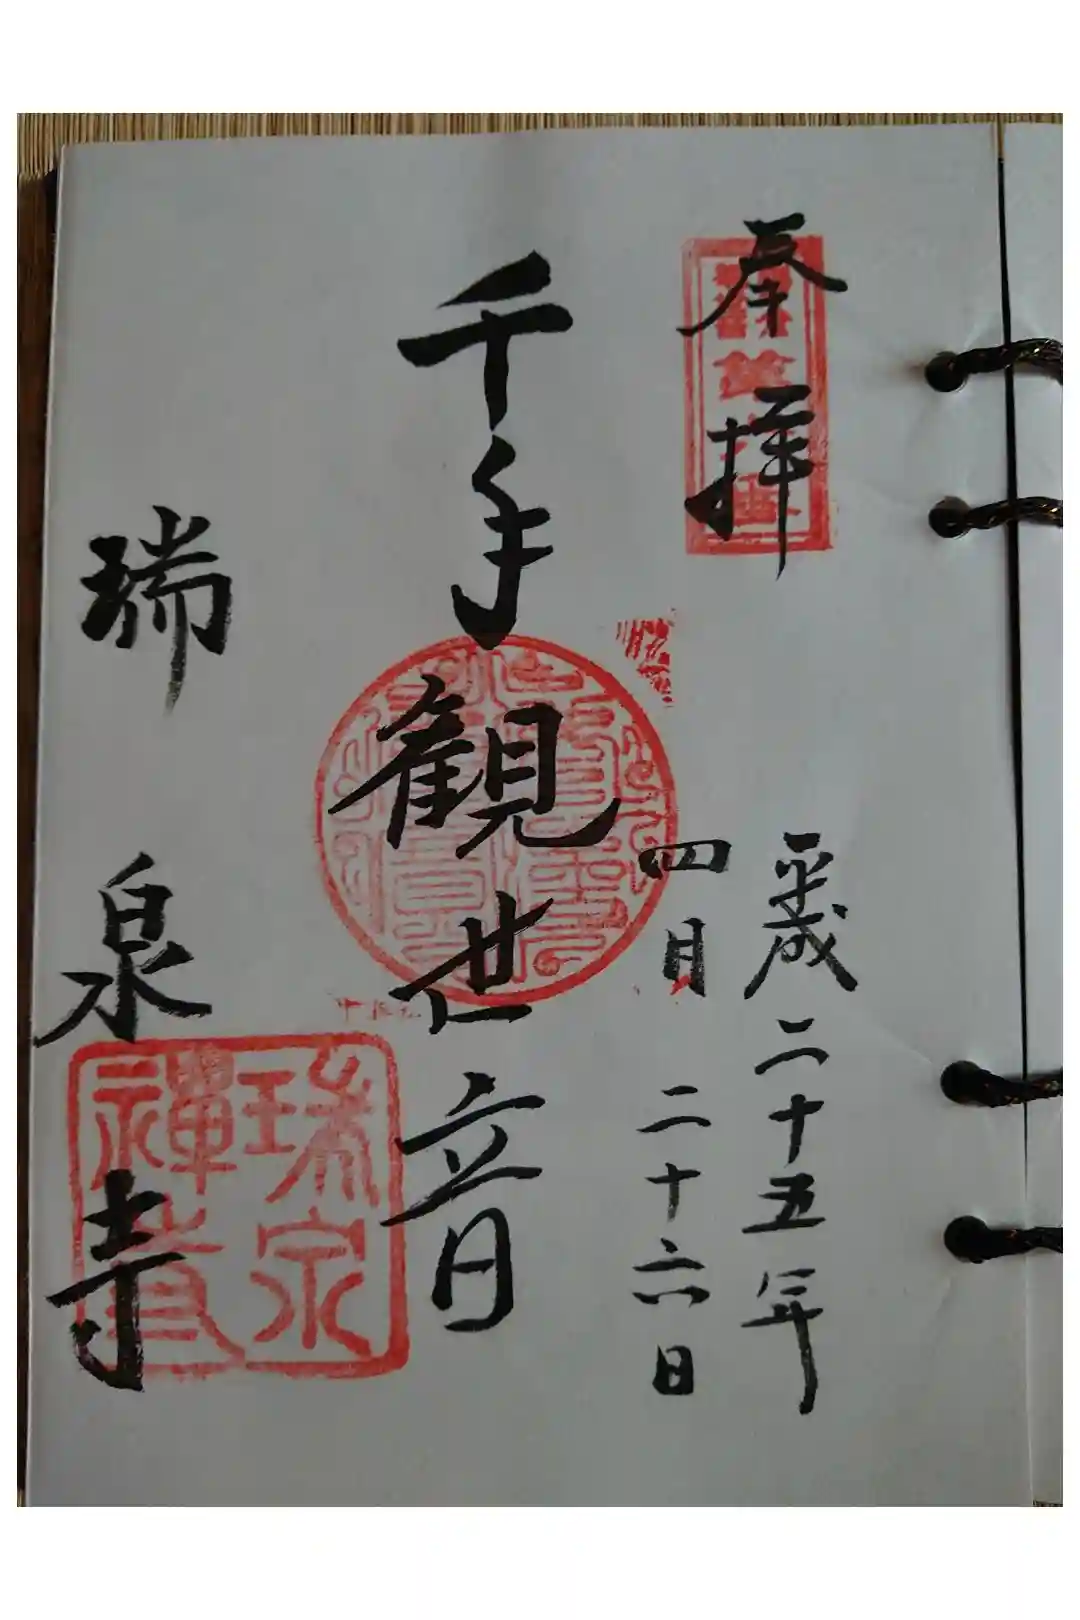 奉拝
平成二十五年
四月二十六日
千手観世音
瑞泉寺
瑞泉
禅寺